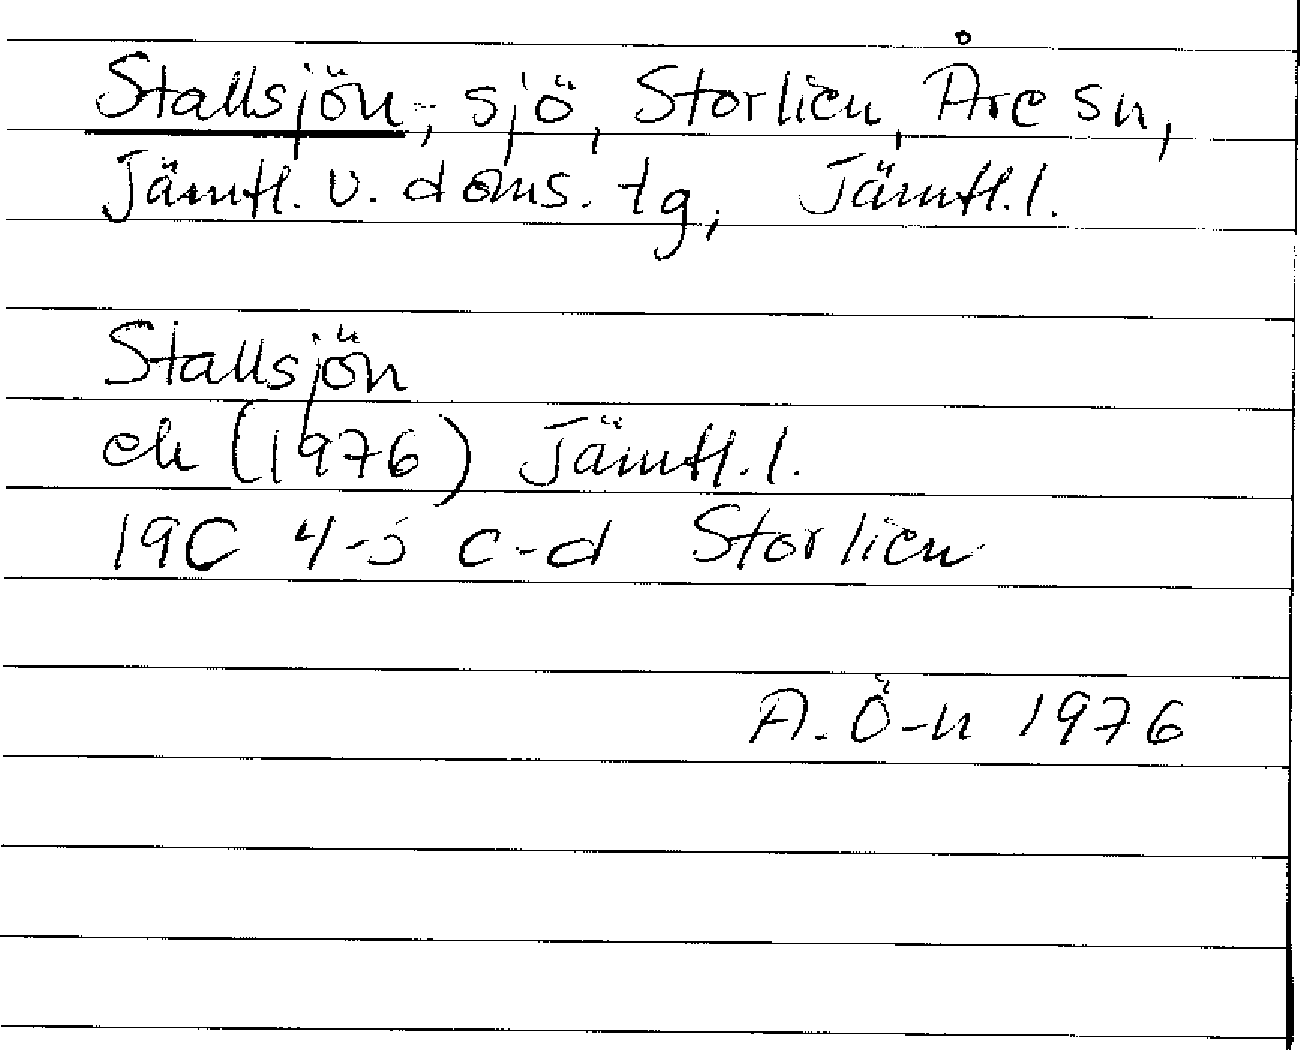 Stallsjön, sjö, Storlien, Åre sn,
Jämtl. v. doms. tg, Jämtl. l.
Stallsjön
ek (1976) Jämtl. l.
19C 4-5 c-d Storlien
A. Ö-n 1976